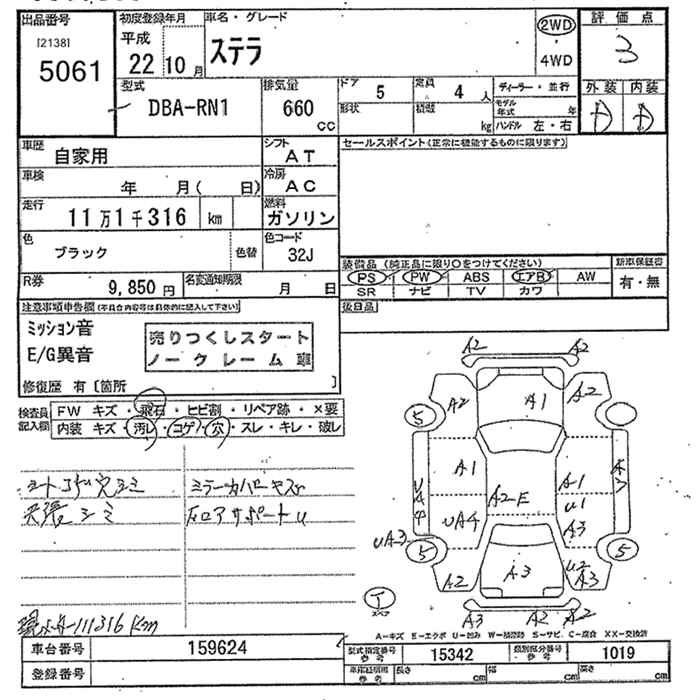 出品番号
[2138]
5061
初度登録年月
平成
22 10 月
車名・グレード
ステラ
2WD
4WD
評価点
3
型式
DBA-RN1
排気量
660
cc
ドア 5
形状
定員 4 人
積載
kg
ディーラー・並行
モデル年式 年
ハンドル 左・右
外装 内装
車歴
自家用
シフト
AT
車検
年 月( 日)
冷房
AC
走行
11万1千316 km
燃料
ガソリン
色
ブラック
色替
色コード
32J
R券
9,850 円
名変通知期限
月 日
セールスポイント(正常に機能するものに限ります)
装備品(純正品に限り○をつけてください)
新車保証書
PS PW ABS エアB AW
SR ナビ TV カワ
有・無
後日品
注意事項申告欄(不具合内容等は具体的に記入して下さい)
ミッション音
E/G異音
売りつくしスタート
ノークレーム車
修復歴 有〔箇所 〕
検査員記入欄
FW キズ・飛石・ヒビ割・リペア跡・×要
内装 キズ・汚レ・コゲ・穴・スレ・キレ・破レ
シートコゲ穴シミ
天張シミ
ミラーカバーキズ
111316 Km
A2 A2
A2 A1 A2
5
A1 A1
UA4 A2-E U1
UA4 A3
UA3
5 5
A2 A3 U2 A3
A3 A2 A2
スペア
A-キズ E-エクボ U-凹み W-補修跡 S-サビ C-腐食 XX-交換済
車台番号
159624
登録番号
型式指定番号
参考
15342
類別区分番号
参考
1019
長さ cm 幅 cm 高さ cm